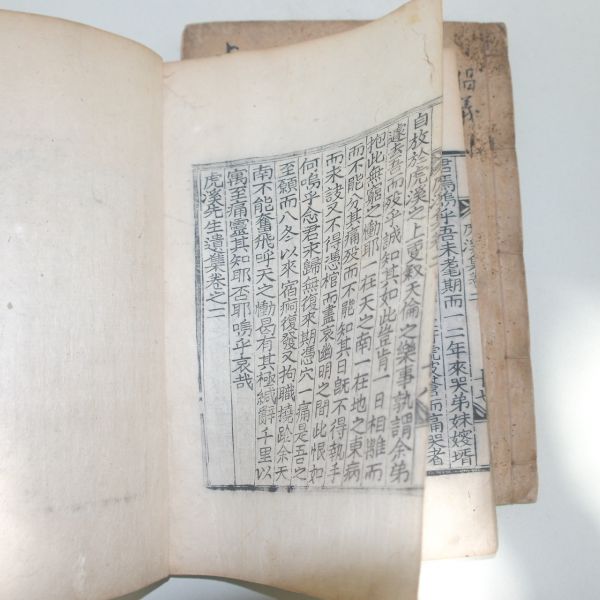 自放於虎溪之上更叙天倫之樂事孰謂余弟
遽去吾而歿乎誠知其如此豈肯一日相離而
抱此無窮之慟耶一在天之南一在地之東病
而不能分其痛歿而不能知其日旣不得執手
而未訣又不得憑棺而盡哀幽明之間此恨如
何嗚乎念君未歸無復來期憑穴一痛是吾之
至願而八冬以來宿痾復發又拘職撓趁余天
南不能奮飛呼天之慟曷有其極緘辭千里以
寓至痛靈其知耶否耶嗚乎哀哉
虎溪先生遺集卷之二
君焉嗚乎吾未耄期而一二年來哭弟妹嫂壻
而痛哭者
虎溪集卷二
倡義